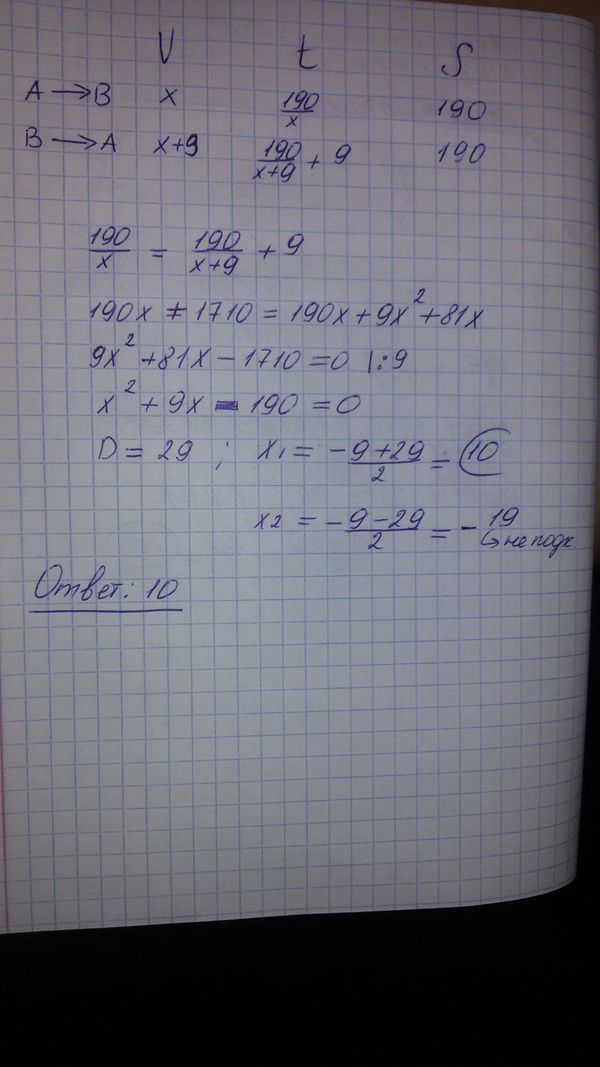 V t S
A → B x 190/x 190
B → A x+9 190/(x+9) + 9 190
190/x = 190/(x+9) + 9
190x + 1710 = 190x + 9x² + 81x
9x² + 81x − 1710 = 0 |:9
x² + 9x − 190 = 0
D = 29 ; x₁ = (−9+29)/2 = 10
x₂ = (−9−29)/2 = −19
↳ не подх.
Ответ: 10